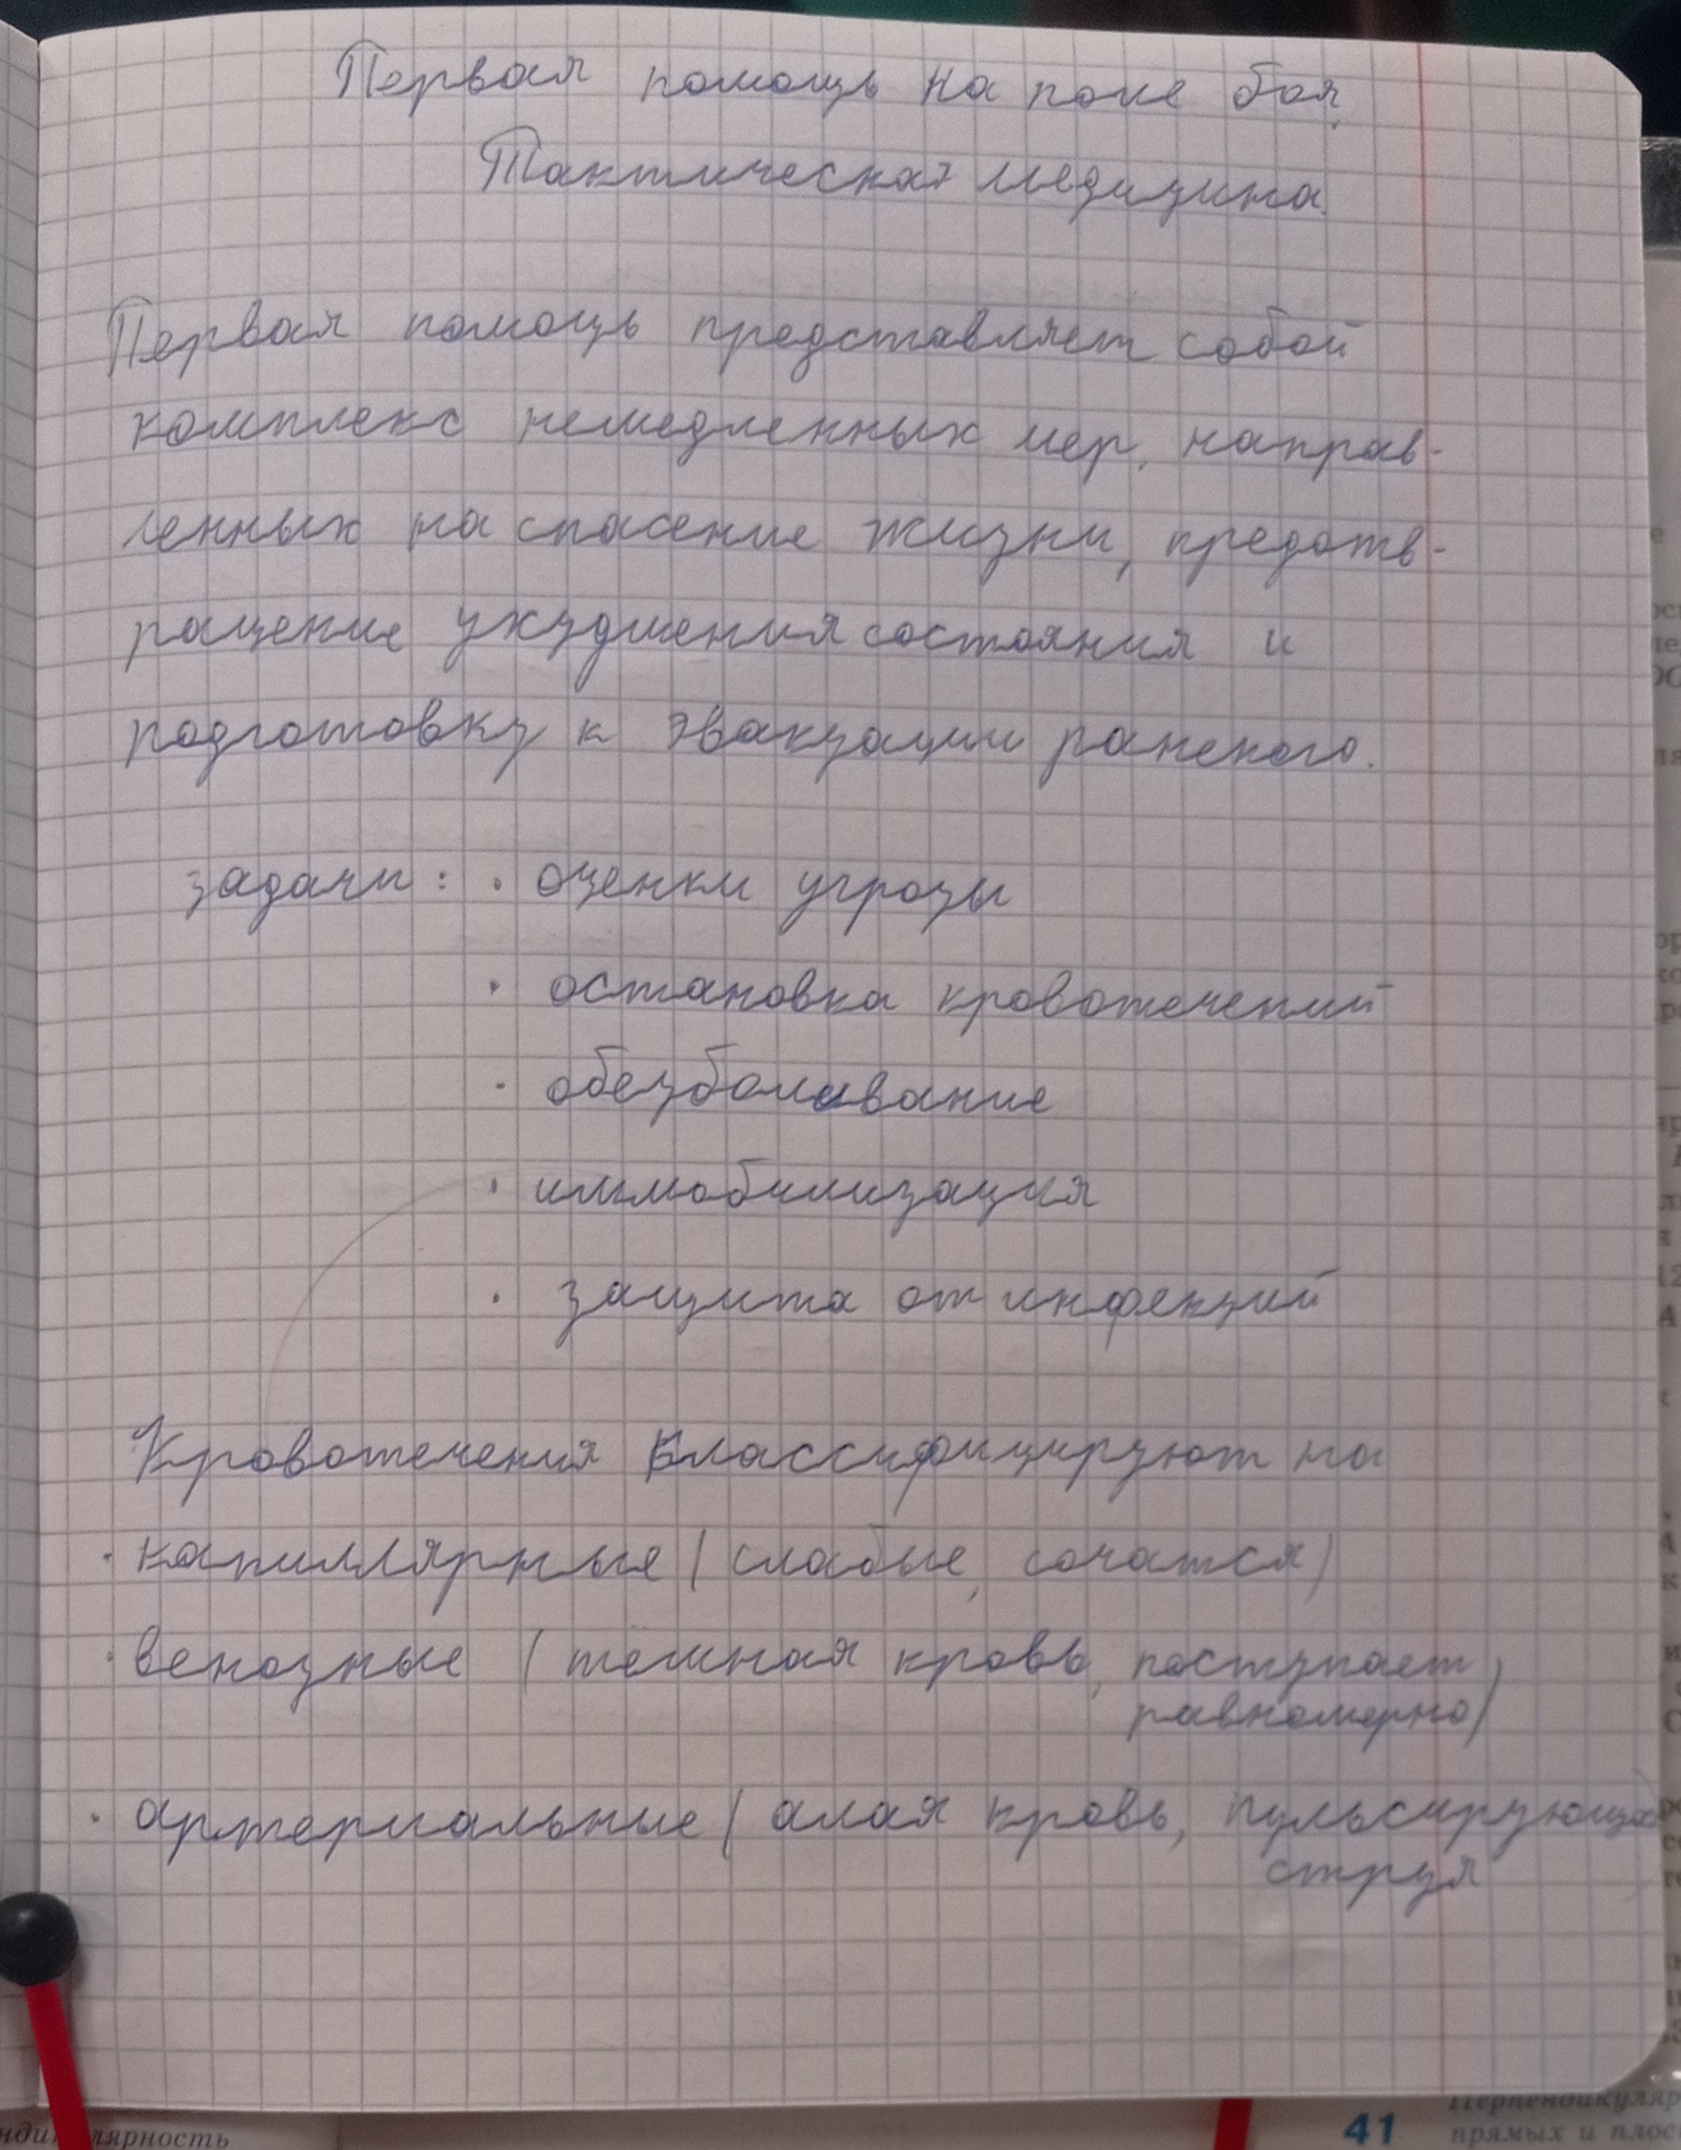 Первая помощь на поле боя.
Тактическая медицина.
Первая помощь представляет собой
комплекс немедленных мер, направ-
ленных на спасение жизни, предотв-
ращение ухудшения состояния и
подготовку к эвакуации раненого.
задачи: · оценки угрозы
· остановка кровотечений
· обезболивание
· иммобилизация
· защита от инфекций
Кровотечения классифицируют на
· капиллярные (слабые, сочатся)
· венозные (тёмная кровь, поступает
равномерно)
· артериальные (алая кровь, пульсирующая
струя
41
Перпендикуляр
прямых и плос
лярность